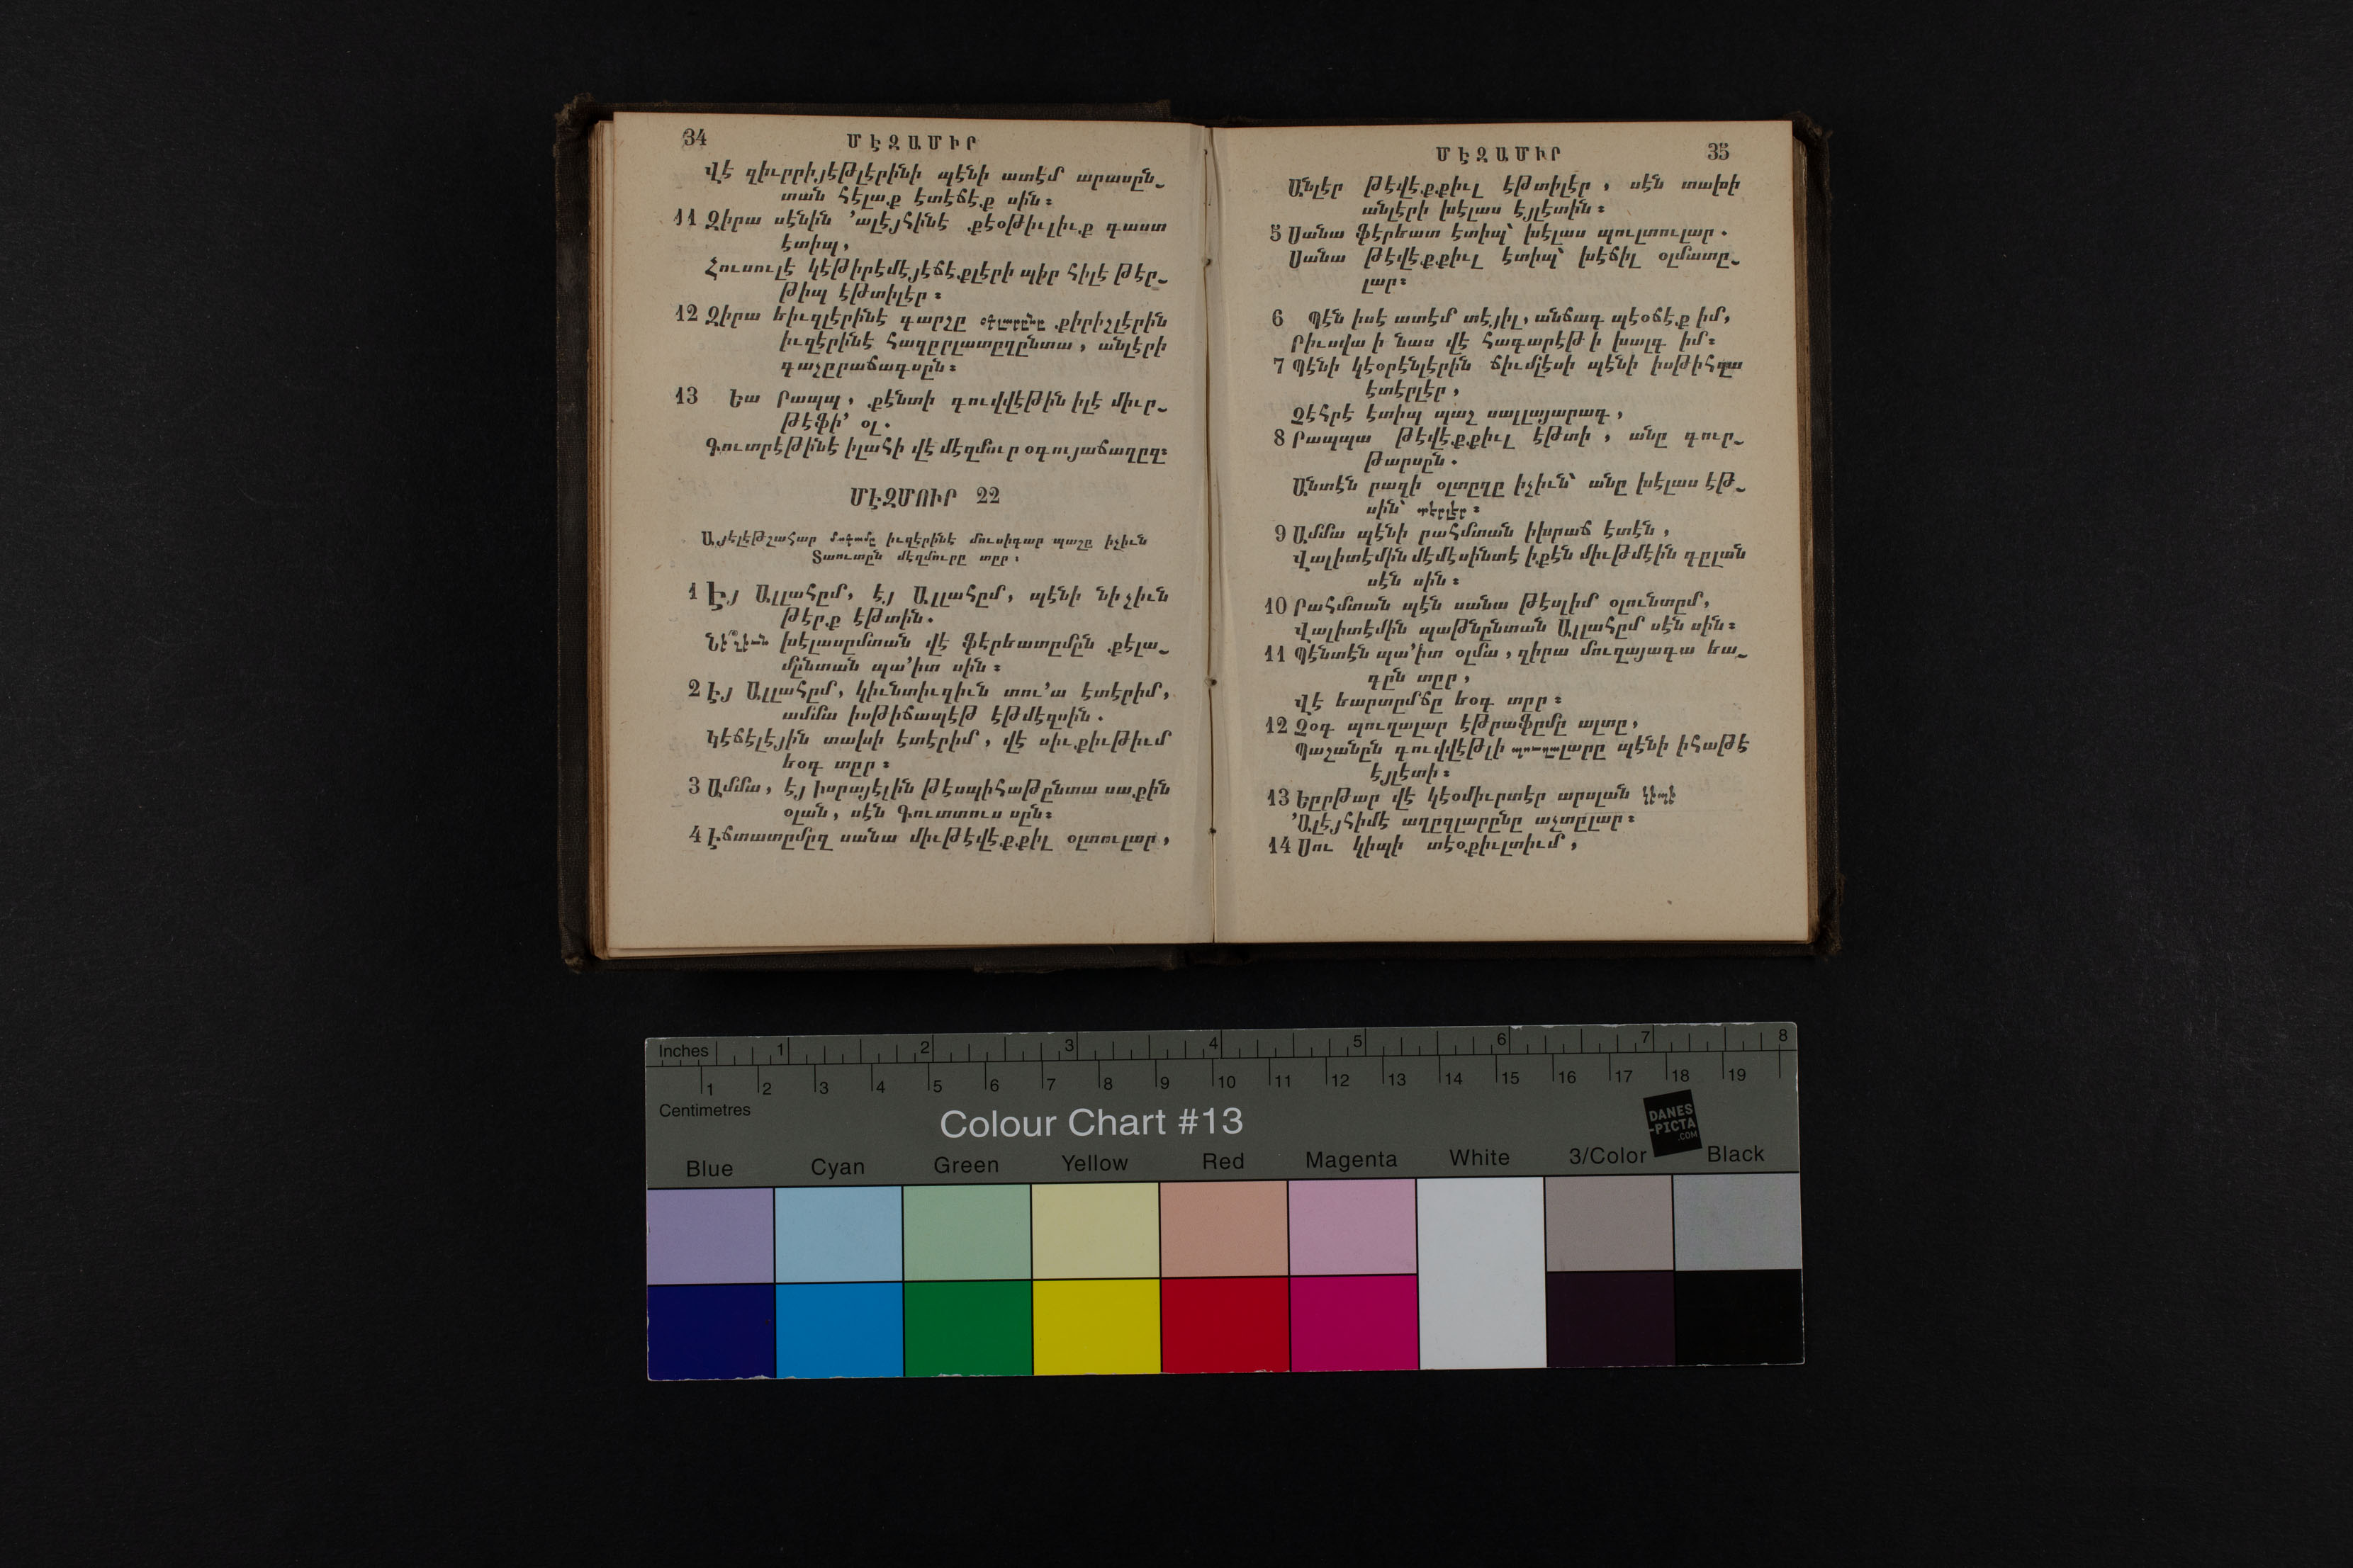 34 ՄԷԶԱՄԻՐ
Վէ զիւրրիյէթլէրինի պէնի ատէմ արասըն֊
տան հէլաք էտէճէք սին։
11 Զիրա սէնին ՚ալէյհինէ քէօթիւլիւք գաստ
էտիպ,
Հուսուլէ կէթիրէմէյէճէքլէրի պիր հիլէ թէր֊
թիպ էթտիլէր։
12 Զիրա եիւզլէրինէ գարշը քիրիշլէրին
իւզէրինէ հազըրլատըղընտա, անլէրի
գաչըրաճագսըն։
13 Եա Րապպ, քէնտի գուվվէթին իլէ միւր֊
թէֆի՚ օլ.
Գուտրէթինէ իլահի վէ մէզմուր օգույաճաղըզ։
ՄԷԶՄՈՒՐ 22
Այէլէթշահար մագամը իւզէրինէ մուսիգար պաշը իչիւն
Տաուտըն մէզմուրը տըր։
1 Էյ Ալլահըմ, էյ Ալլահըմ, պէնի նիչիւն
թէրք էթտին.
Նէ՞ իչիւն խէլասըմտան վէ ֆէրեատըմըն քէլա֊
մընտան պա՚իտ սին։
2 Էյ Ալլահըմ, կիւնտիւզիւն տու՚ա էտէրիմ,
ամմա իսթիճապէթ էթմէզսին.
Կէճէլէյին տախի էտէրիմ, վէ սիւքիւթիւմ
եօգ տըր։
3 Ամմա, էյ Իսրայէլին թէսպիհաթընտա սաքին
օլան, սէն Գուտտուս սըն։
4 Էճտատըմըզ սանա միւթէվէքքիլ օլտուլար,
ՄԷԶԱՄԻՐ 35
Անլէր թէվէքքիւլ էթտիլէր, սէն տախի
անլէրի խէլաս էյլէտին։
5 Սանա ֆէրեատ էտիպ՝ խէլաս պուլտուլար.
Սանա թէվէքքիւլ էտիպ՝ խէճիլ օլմատը֊
լար։
6 Պէն իսէ ատէմ տէյիլ, անճագ պէօճէք իմ,
Րիւսվա ի նաս վէ հագարէթ ի խալգ իմ։
7 Պէնի կէօրէնլէրին ճիւմլէսի պէնի իսթիհզա
էտէրլէր,
Չէհրէ էտիպ պաշ սալլայարագ,
8 Րապպա թէվէքքիւլ էթտի, անը գուր֊
թարսըն.
Անտէն րազի օլտըղը իչիւն՝ անը խէլաս էթ֊
սին՝ տէրլէր։
9 Ամմա պէնի րահմտան իխրաճ էտէն,
Վալիտէմին մէմէսինտէ իքէն միւթմէին գըլան
սէն սին։
10 Րահմտան պէն սանա թէսլիմ օլունտըմ,
Վալիտէմին պաթնընտան Ալլահըմ սէն սին։
11 Պէնտէն պա՚իտ օլմա, զիրա մուզայագա եա֊
գըն տըր,
Վէ եարտըմճը եօգ տըր։
12 Չօգ պուղալար էթրաֆըմը ալտը,
Պաշանըն գուվվէթլի պուղալարը պէնի իհաթէ
էյլէտի։
13 Եըրթար վէ կէօմիւրտէր արսլան կիպի
՚Ալէյհիմէ աղըզլարընը աչտըլար։
14 Սու կիպի տէօքիւլտիւմ,
Inches 1 2 3 4 5 6 7 8
1 2 3 4 5 6 7 8 9 10 11 12 13 14 15 16 17 18 19
Centimetres
Colour Chart #13
DANES
-PICTA
.COM
Blue Cyan Green Yellow Red Magenta White 3/Color Black